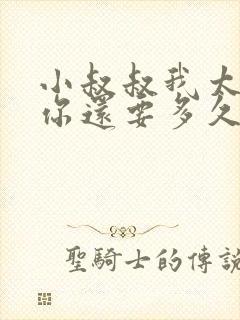 小叔叔我太
你還要多久
聖騎士的傳說